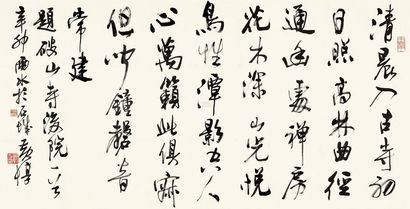 清晨入古寺初
日照高林曲徑
通幽處禪房
花木深山光悅
鳥性潭影空人
心萬籟此俱寂
但聞鐘磬音
常建
題破山寺後院
辛卯雨水於石城